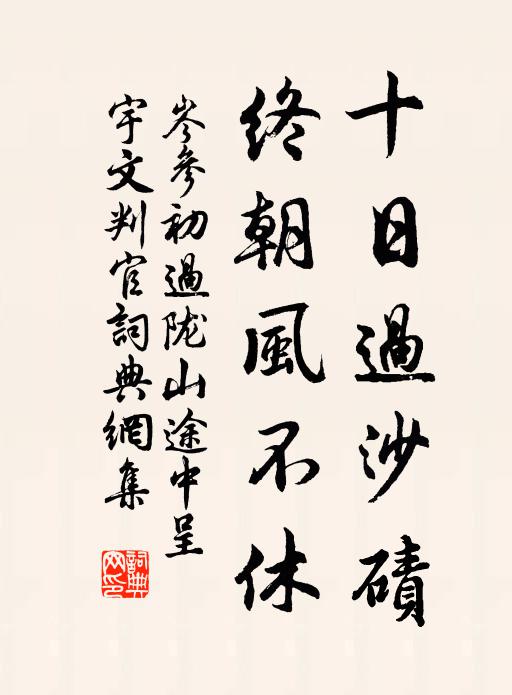 十日過沙磧
終朝風不休
岑參初過陇山途中呈
宇文判官詞典網集
詞典網印